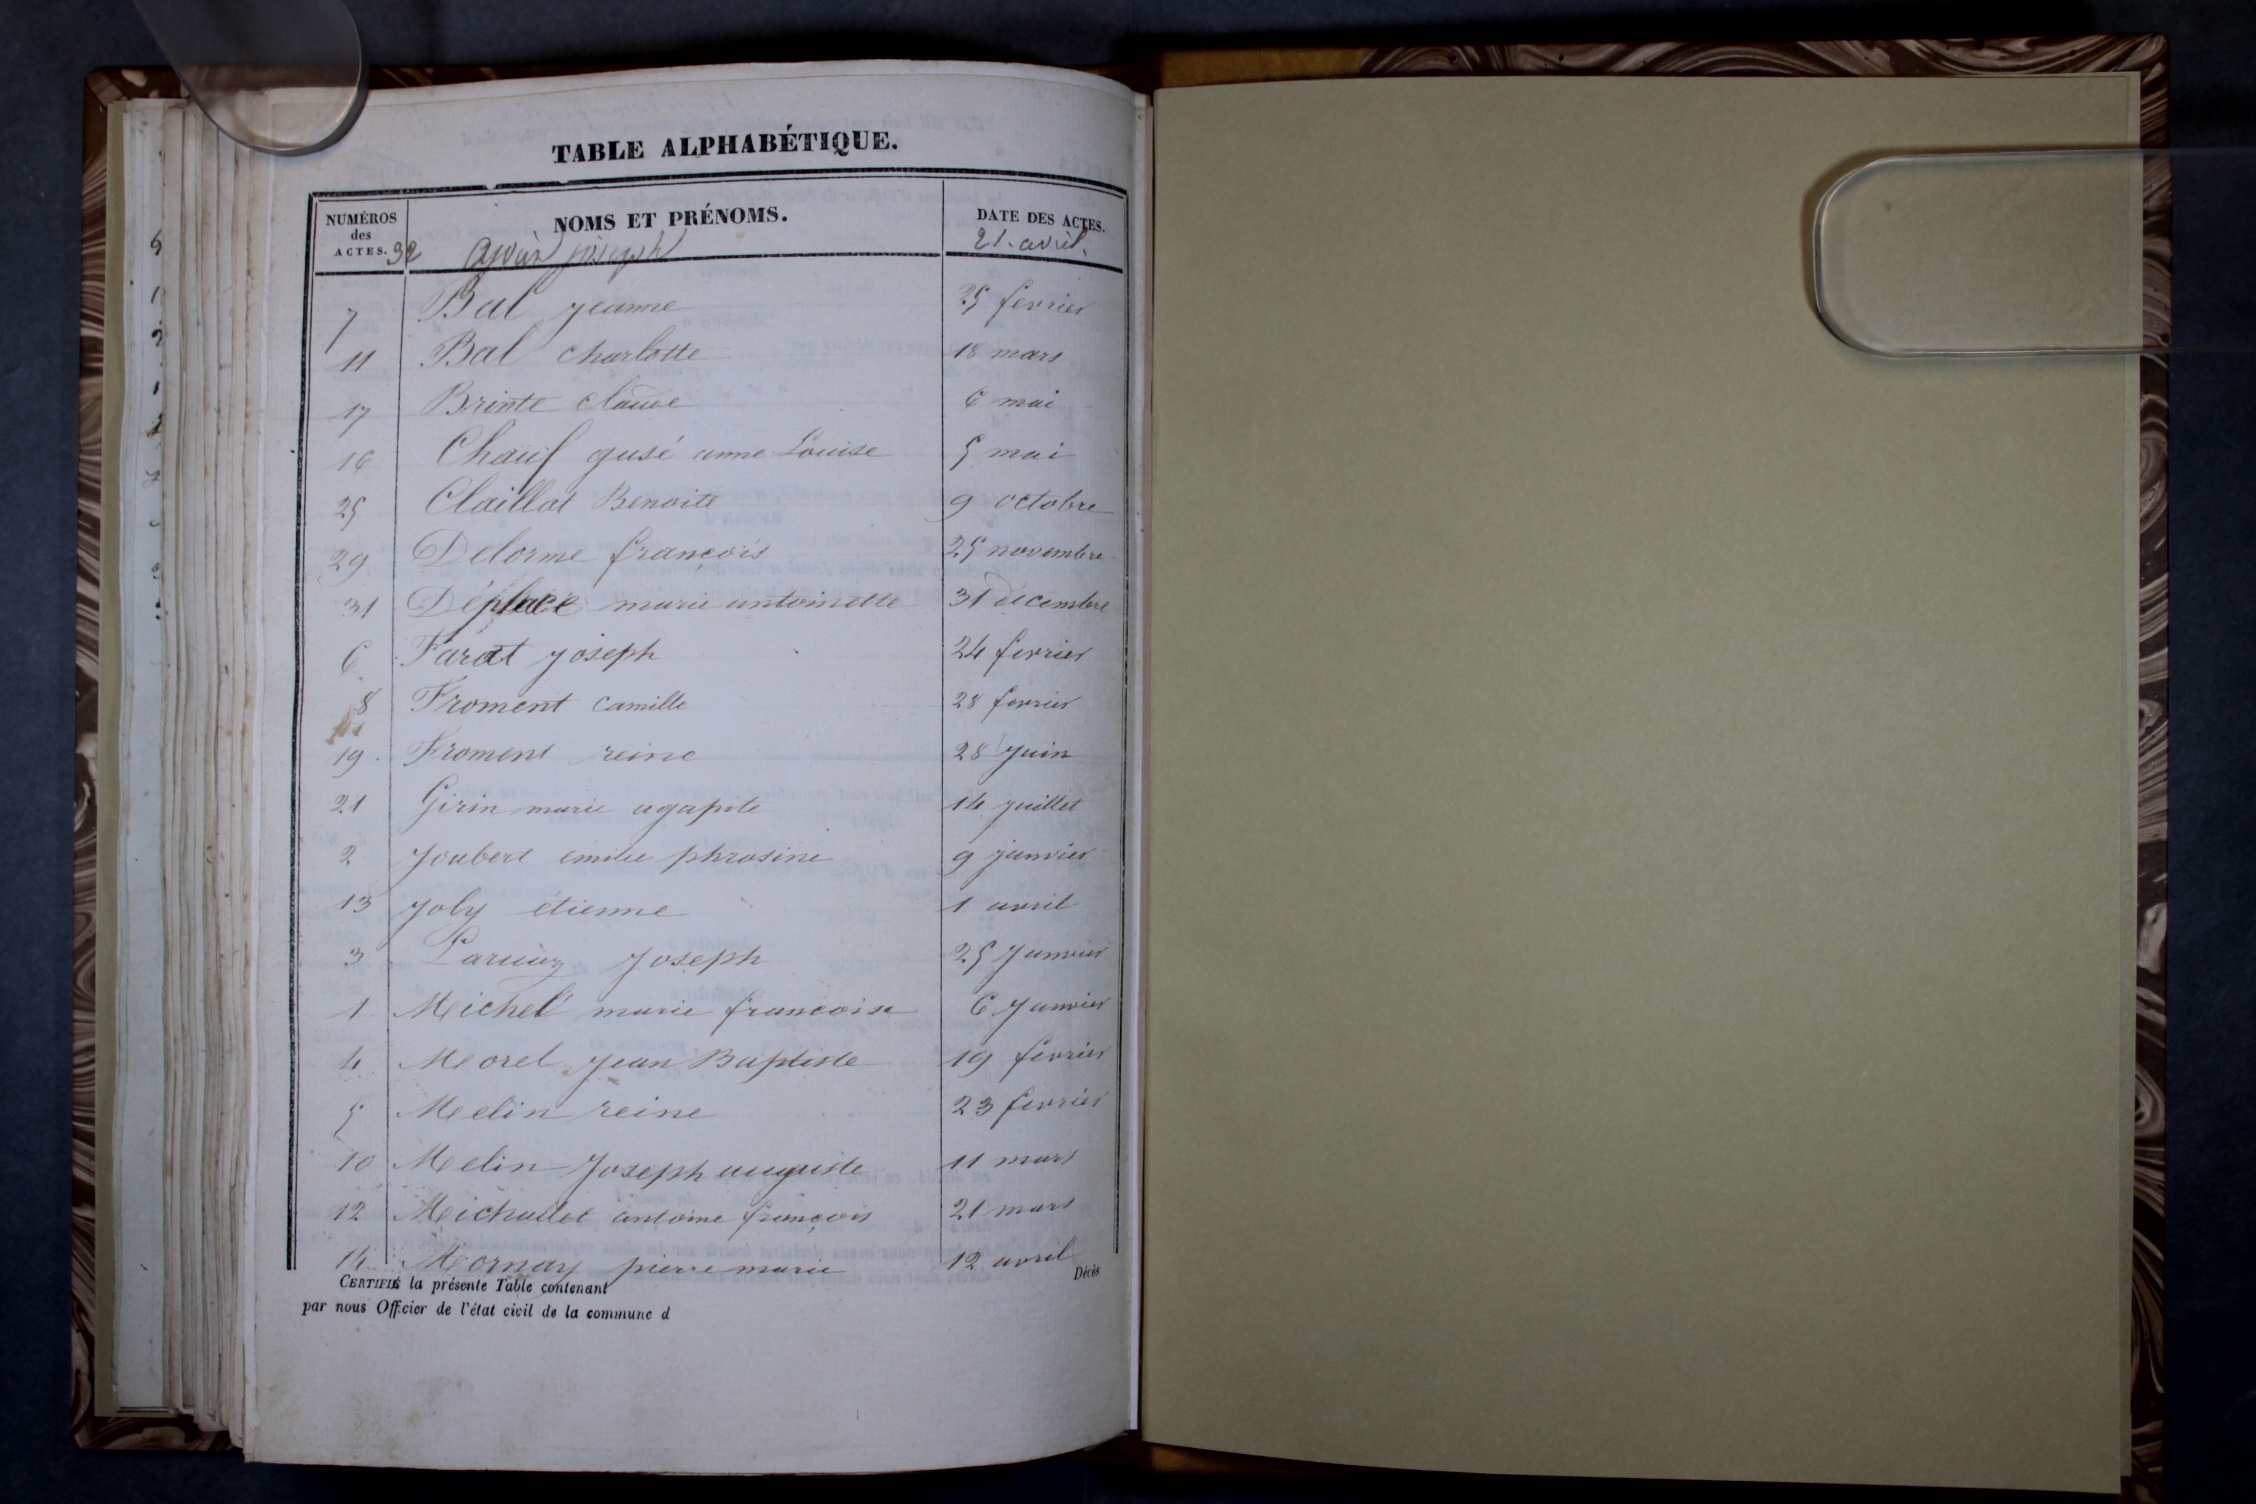 TABLE ALPHABÉTIQUE.
NUMÉROS des ACTES. NOMS ET PRÉNOMS. DATE DES ACTES.
32 joseph 21. avril.
7 Bal jeanne 25 fevrier
11 Bal charlotte 18 mars
17 Brinte claude 6 mai
16 Chauf gusé anne Louise 5 mai
25 Claillat Benoite 9 octobre
29 Delorme françois 25 novembre
31 Déplace marie antoinette 31 decembre
6 Farat joseph 24 fevrier
8 Froment camille 28 fevrier
19 Froment reine 28 juin
21 Girin marie agapite 14 juillet
2 Joubert emilie phrosine 9 janvier
13 Joly étienne 1 avril
3 Joseph 25 Janvier
1 Michel marie francoise 6 Janvier
4 Morel jean Baptiste 19 fevrier
5 Melin reine 23 fevrier
10 Melin Joseph auguste 11 mars
12 Michallet antoine françois 21 mars
14 Mornay pierre marie 12 avril
CERTIFIÉ la présente Table contenant Décès
par nous Officier de l'état civil de la commune d